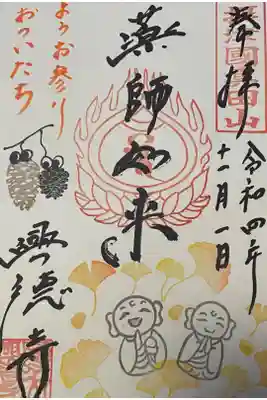 奉拝
令和四年
十一月一日
薬師如来
ようお参り
おついたち
興徳寺